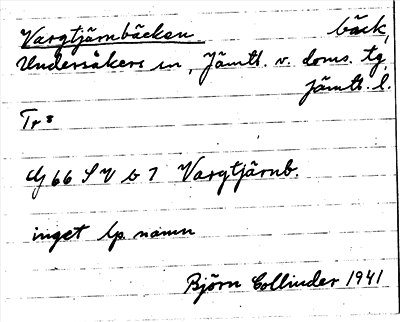 Vargtjärnbäcken bäck,
Undersåkers sn, Jämtl. v. doms. tg,
Jämtl. l.
Tr:
66 SV b 7 Vargtjärnb.
inget lp. namn
Björn Collinder 1941